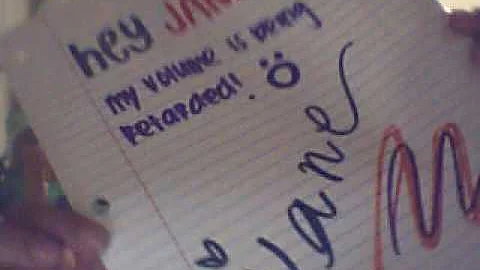 hey JANE
my volume is being
retarded!
Jane
M